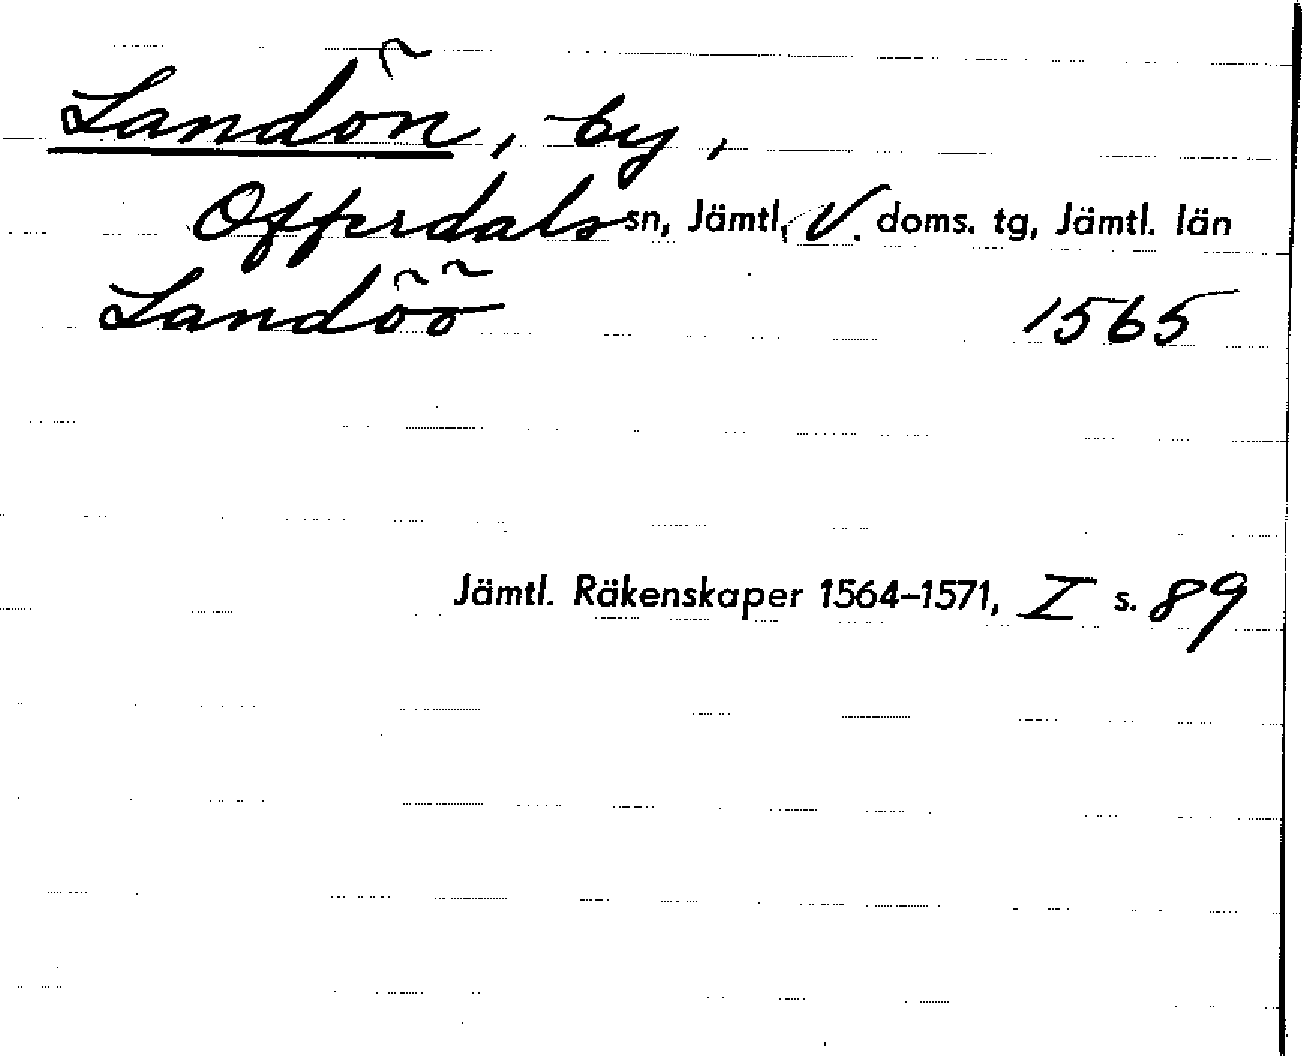 Landön, by,
Offerdals sn, Jämtl, V. doms. tg, Jämtl. län
Landöö 1565
Jämtl. Räkenskaper 1564-1571, I s. 89